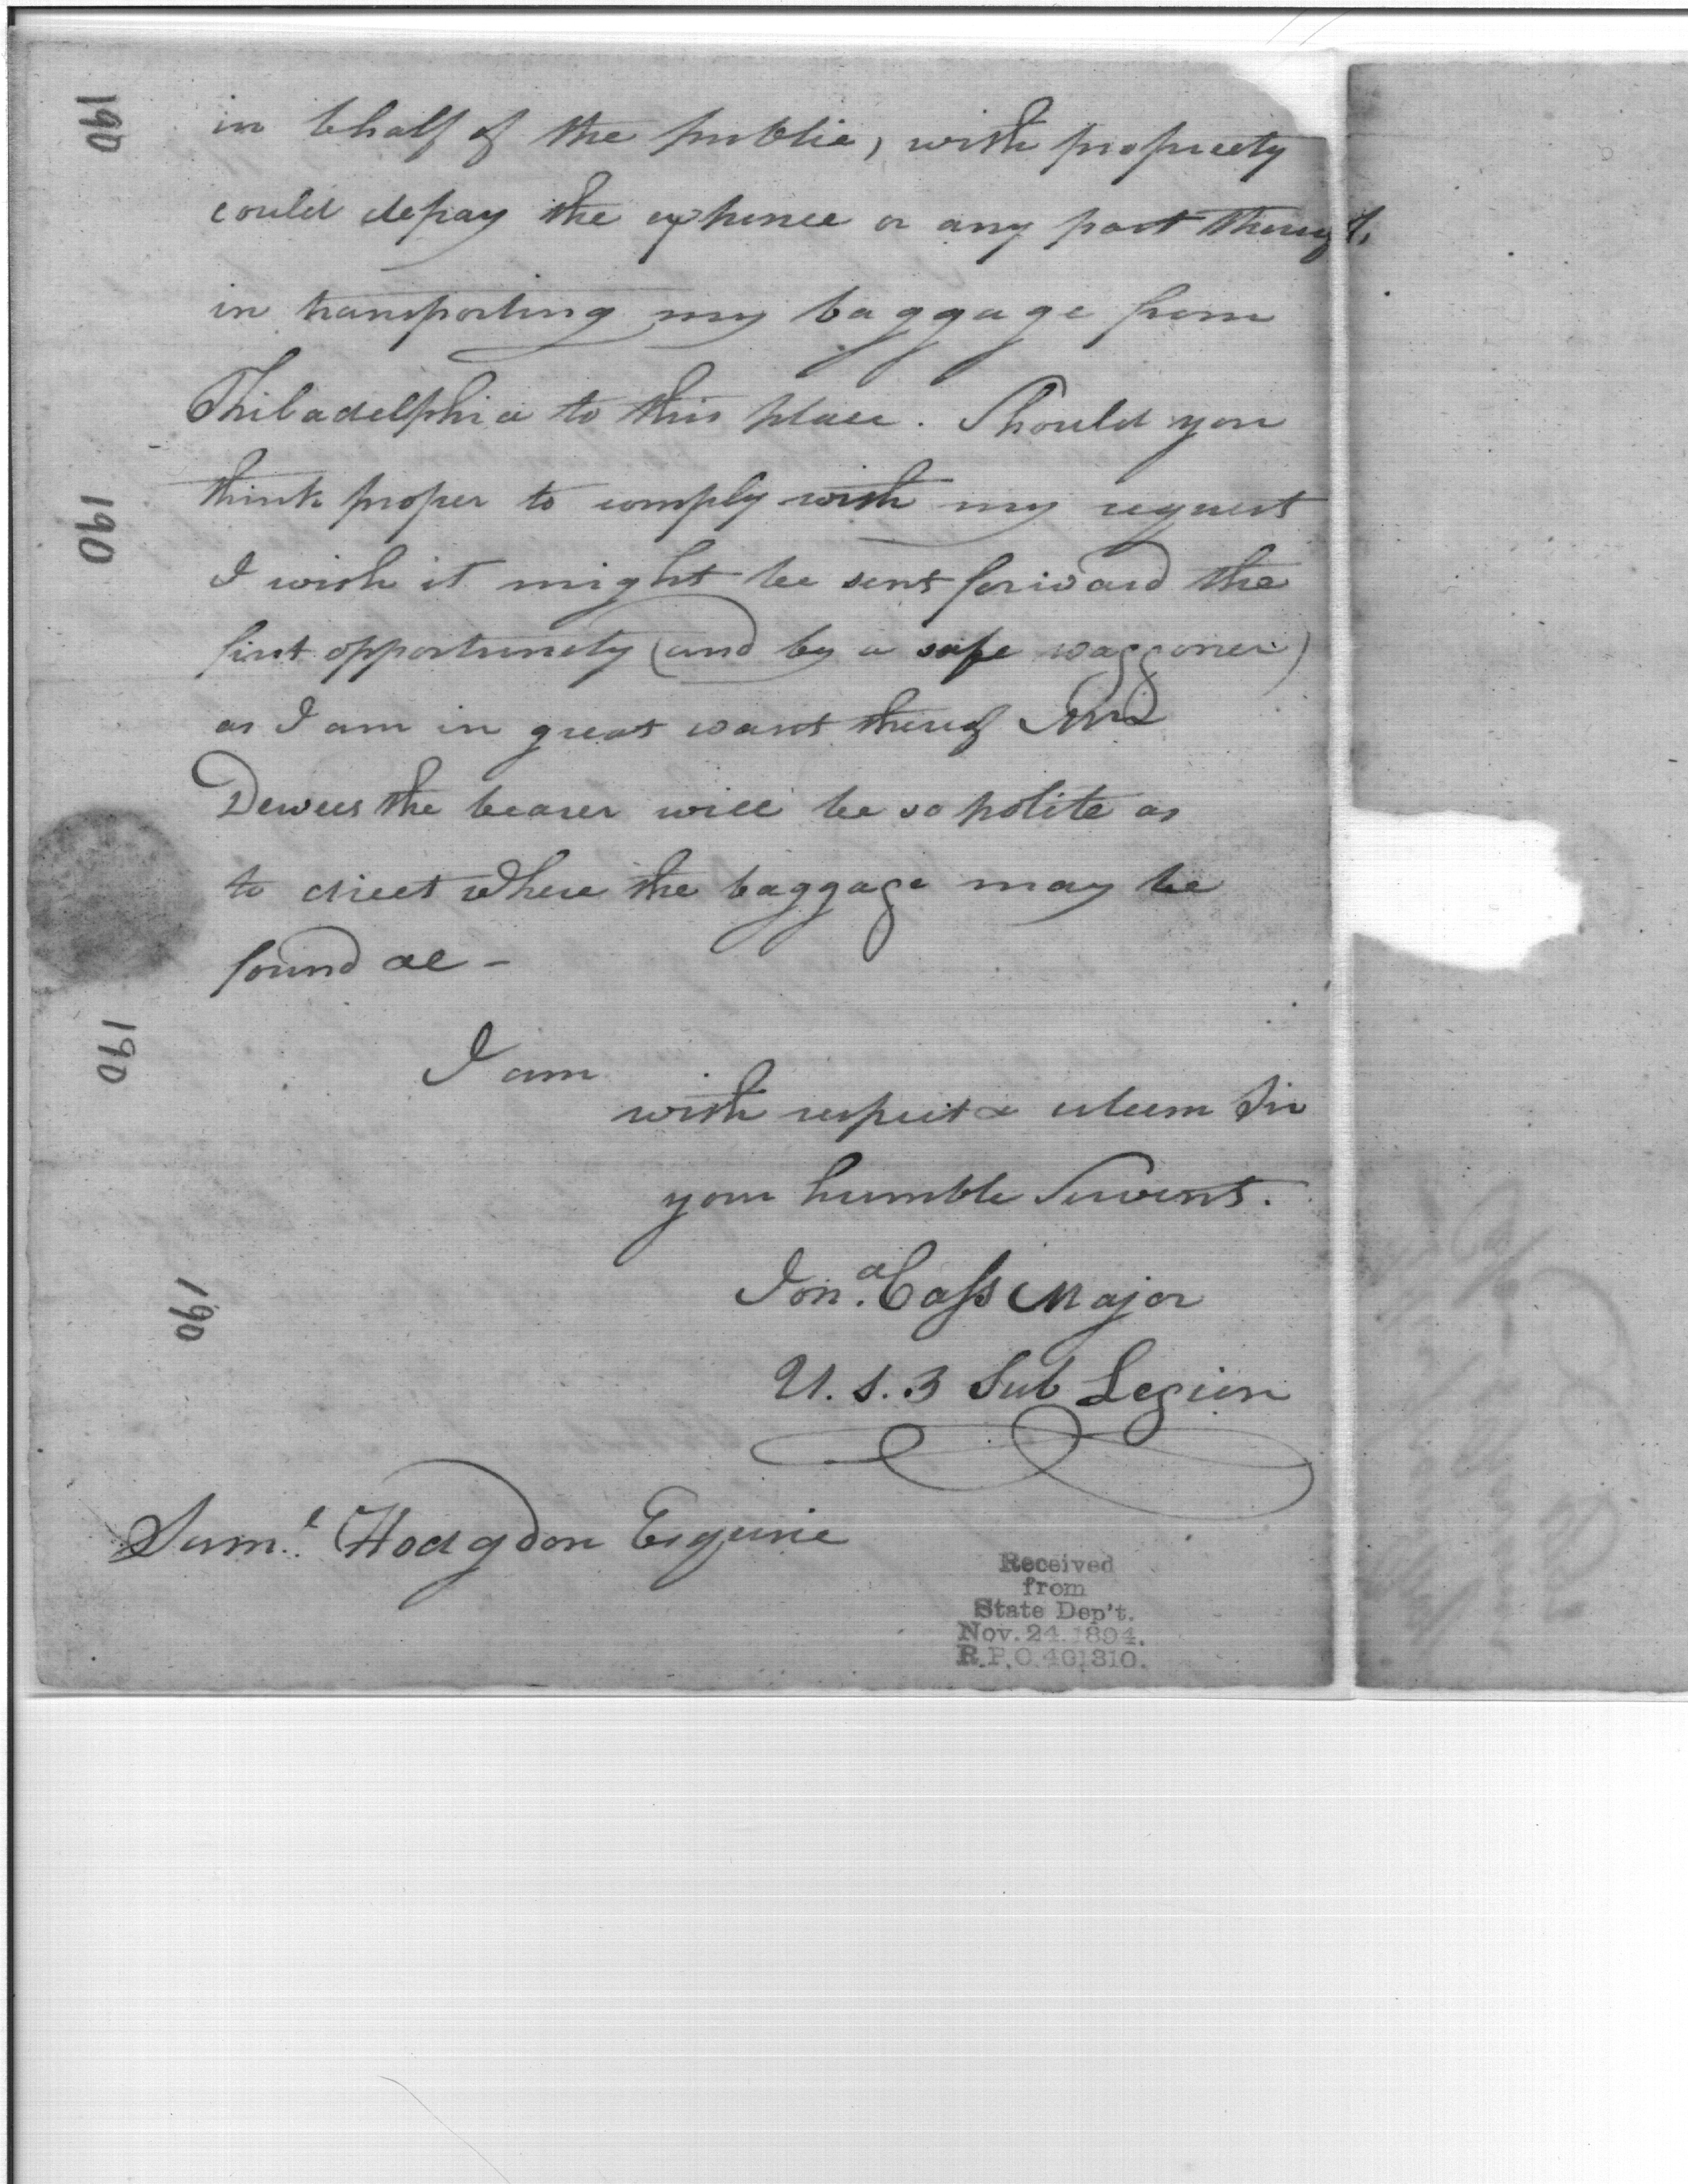 in behalf of the public, with propriety
could depay the expence or any part thereof,
in transporting my baggage from
Philadelphia to this place. Should you
think proper to comply with my request
I wish it might be sent forward the
first opportunety (and by a safe waggoner)
as I am in great want thereof
Dewees the bearer will be so polite as
to direct where the baggage may be
found &c -
I am
with respect & esteem Sir
your humble Servent.
Jona. Cass Major
U. S. 3 Sub Legion
Saml. Hodgdon Esquire
Received
from
State Dep't.
Nov. 24 1894.
R.P.O. 401310.
190
190
190
190